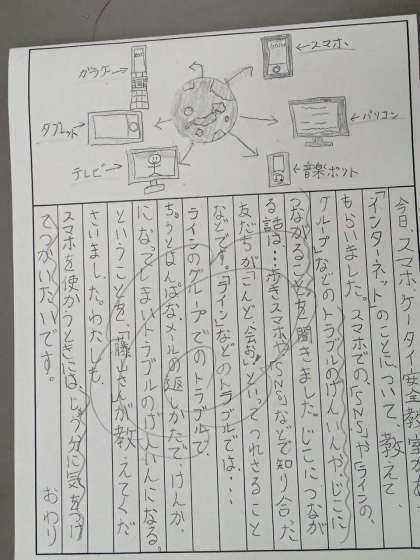 ガラケー
スマホ
タブレット
パソコン
テレビ
音楽ポット
今日、スマホケータイ安全教室で、
「インターネット」のことについて、教えて
もらいました。スマホでの、「SNS」や「ラインの、
グループ」などのトラブルのげんいんや、じこに
つながることを聞きました。じこにつなが
る話は…歩きスマホや「SNS」などで知り合った
友だちが「こんど、会お」といってつれさること
などです。「ライン」などのトラブルでは…
ラインのグループでのトラブルで
ちゅうとはんぱなメールの返しかたで、けんか
になってしまいトラブルのげんいんになる。
ということを、「藤山さん」が教えてくだ
さいました。わたしも、
スマホを使かうときには、じゅう分に気をつけ
てつかいたいです。
おわり